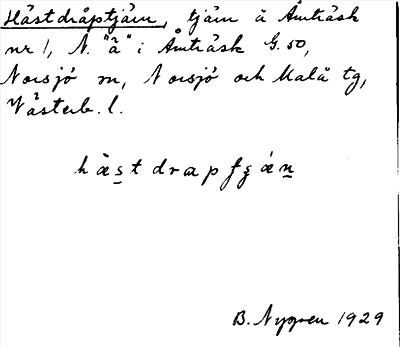 Hästdråptjärn, tjärn å Åmträsk
nr 1, N. "å" i Åmträsk G. 50,
Norsjö sn, Norsjö och Malå tg,
Västerb. l.
B. Nygren 1929